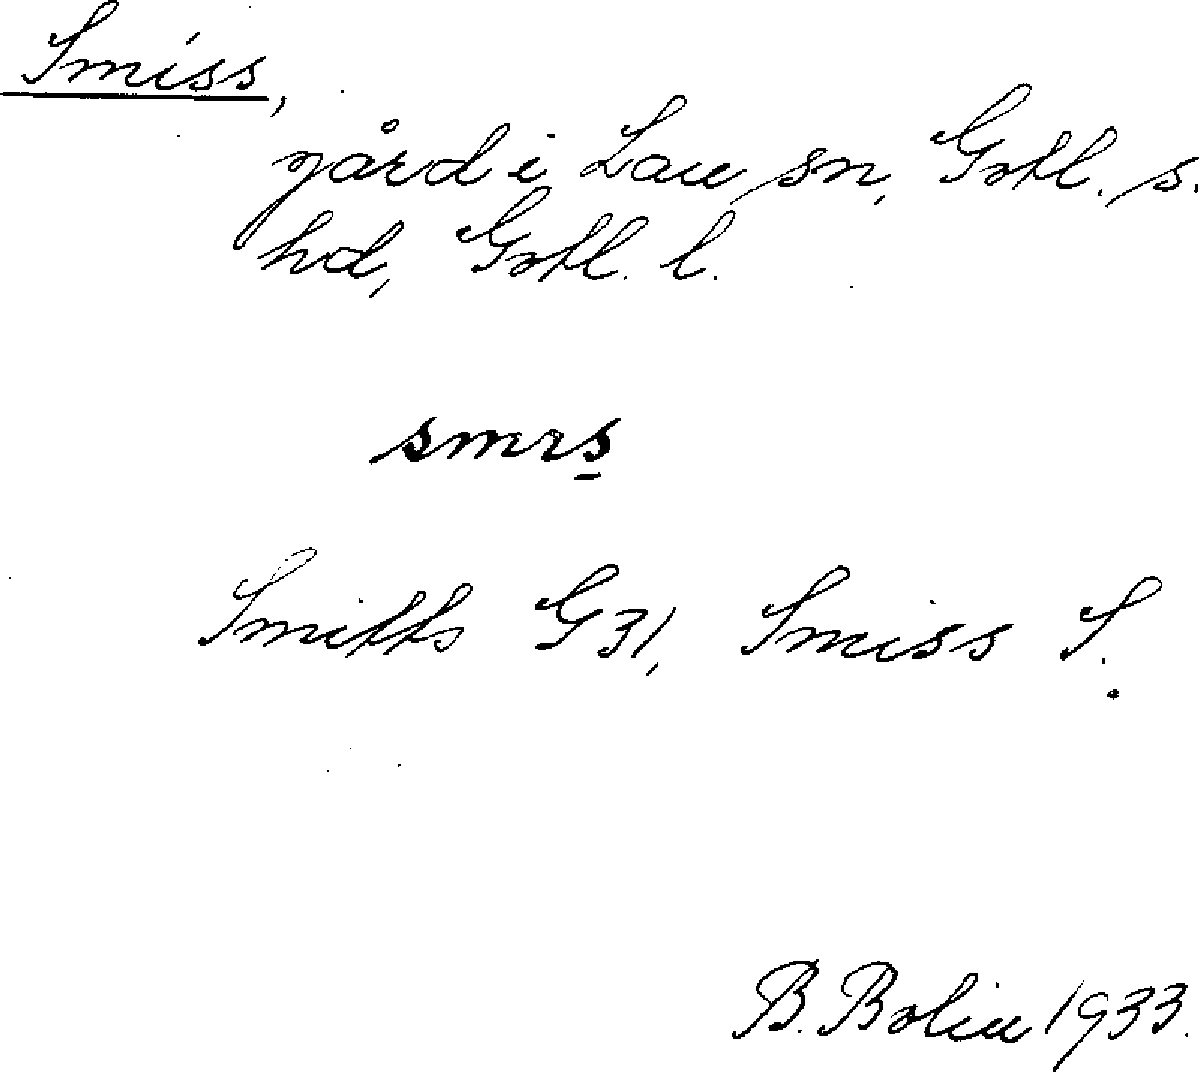 Smiss,
gård i Lau sn, Gotl. s.
hd, Gotl. l.
smıs̲
Smitts G31, Smiss S.
B. Bolin 1933.